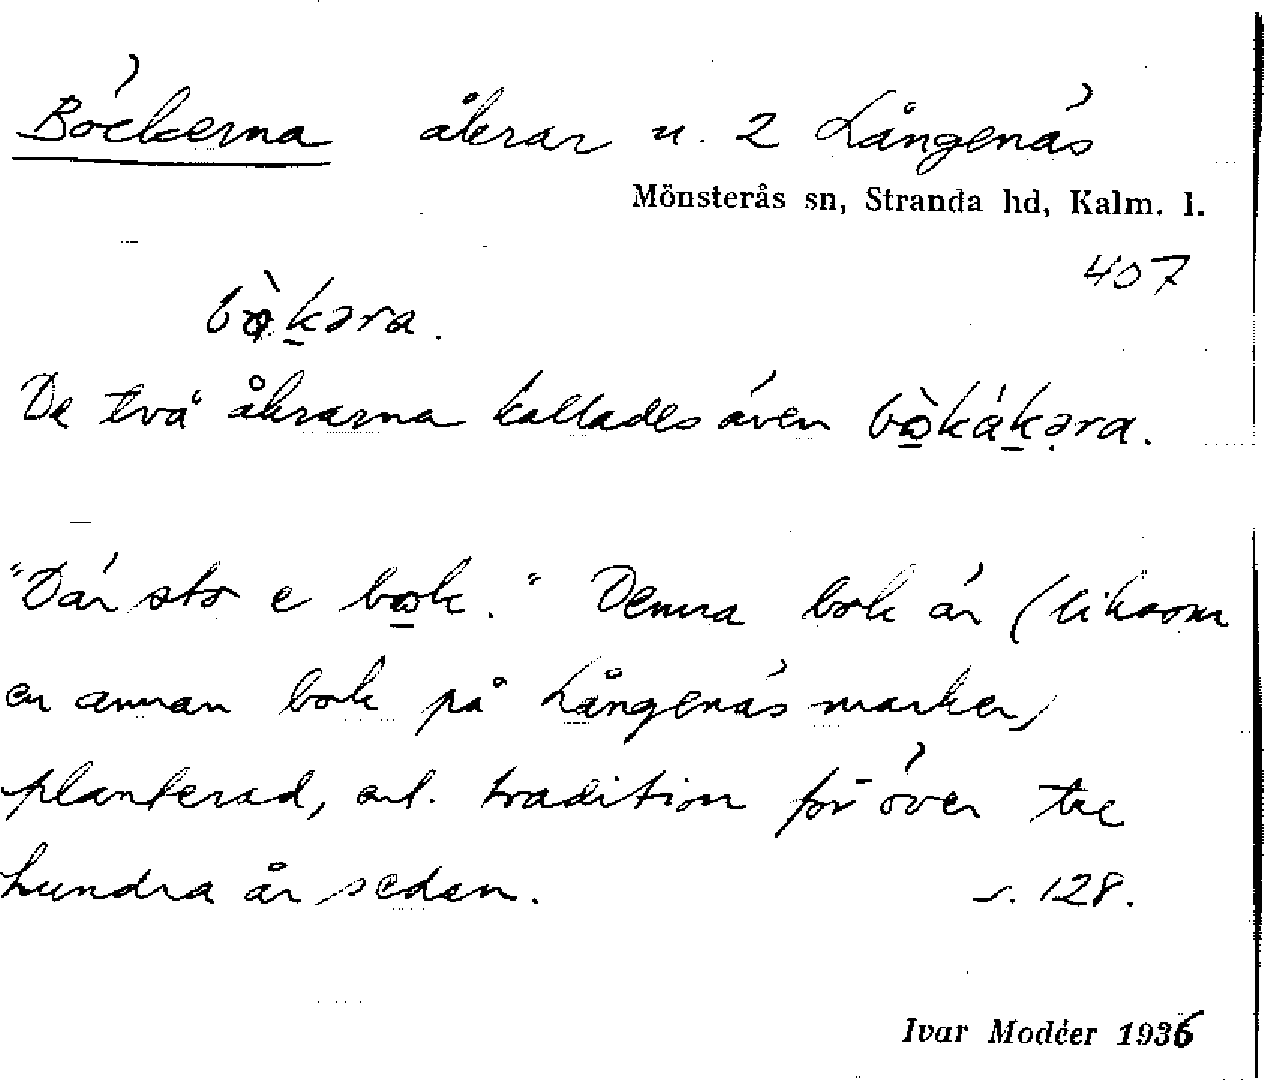 Böckerna åkrar u. 2 Långenäs
Mönsterås sn, Stranda hd, Kalm. l.
407
De två åkrarna kallades även
"Där sto e bok." Denna bok är (liksom
en annan bok på Långenäs marker)
planterad, enl. tradition för över tre
hundra år sedan. s. 128.
Ivar Modéer 1936